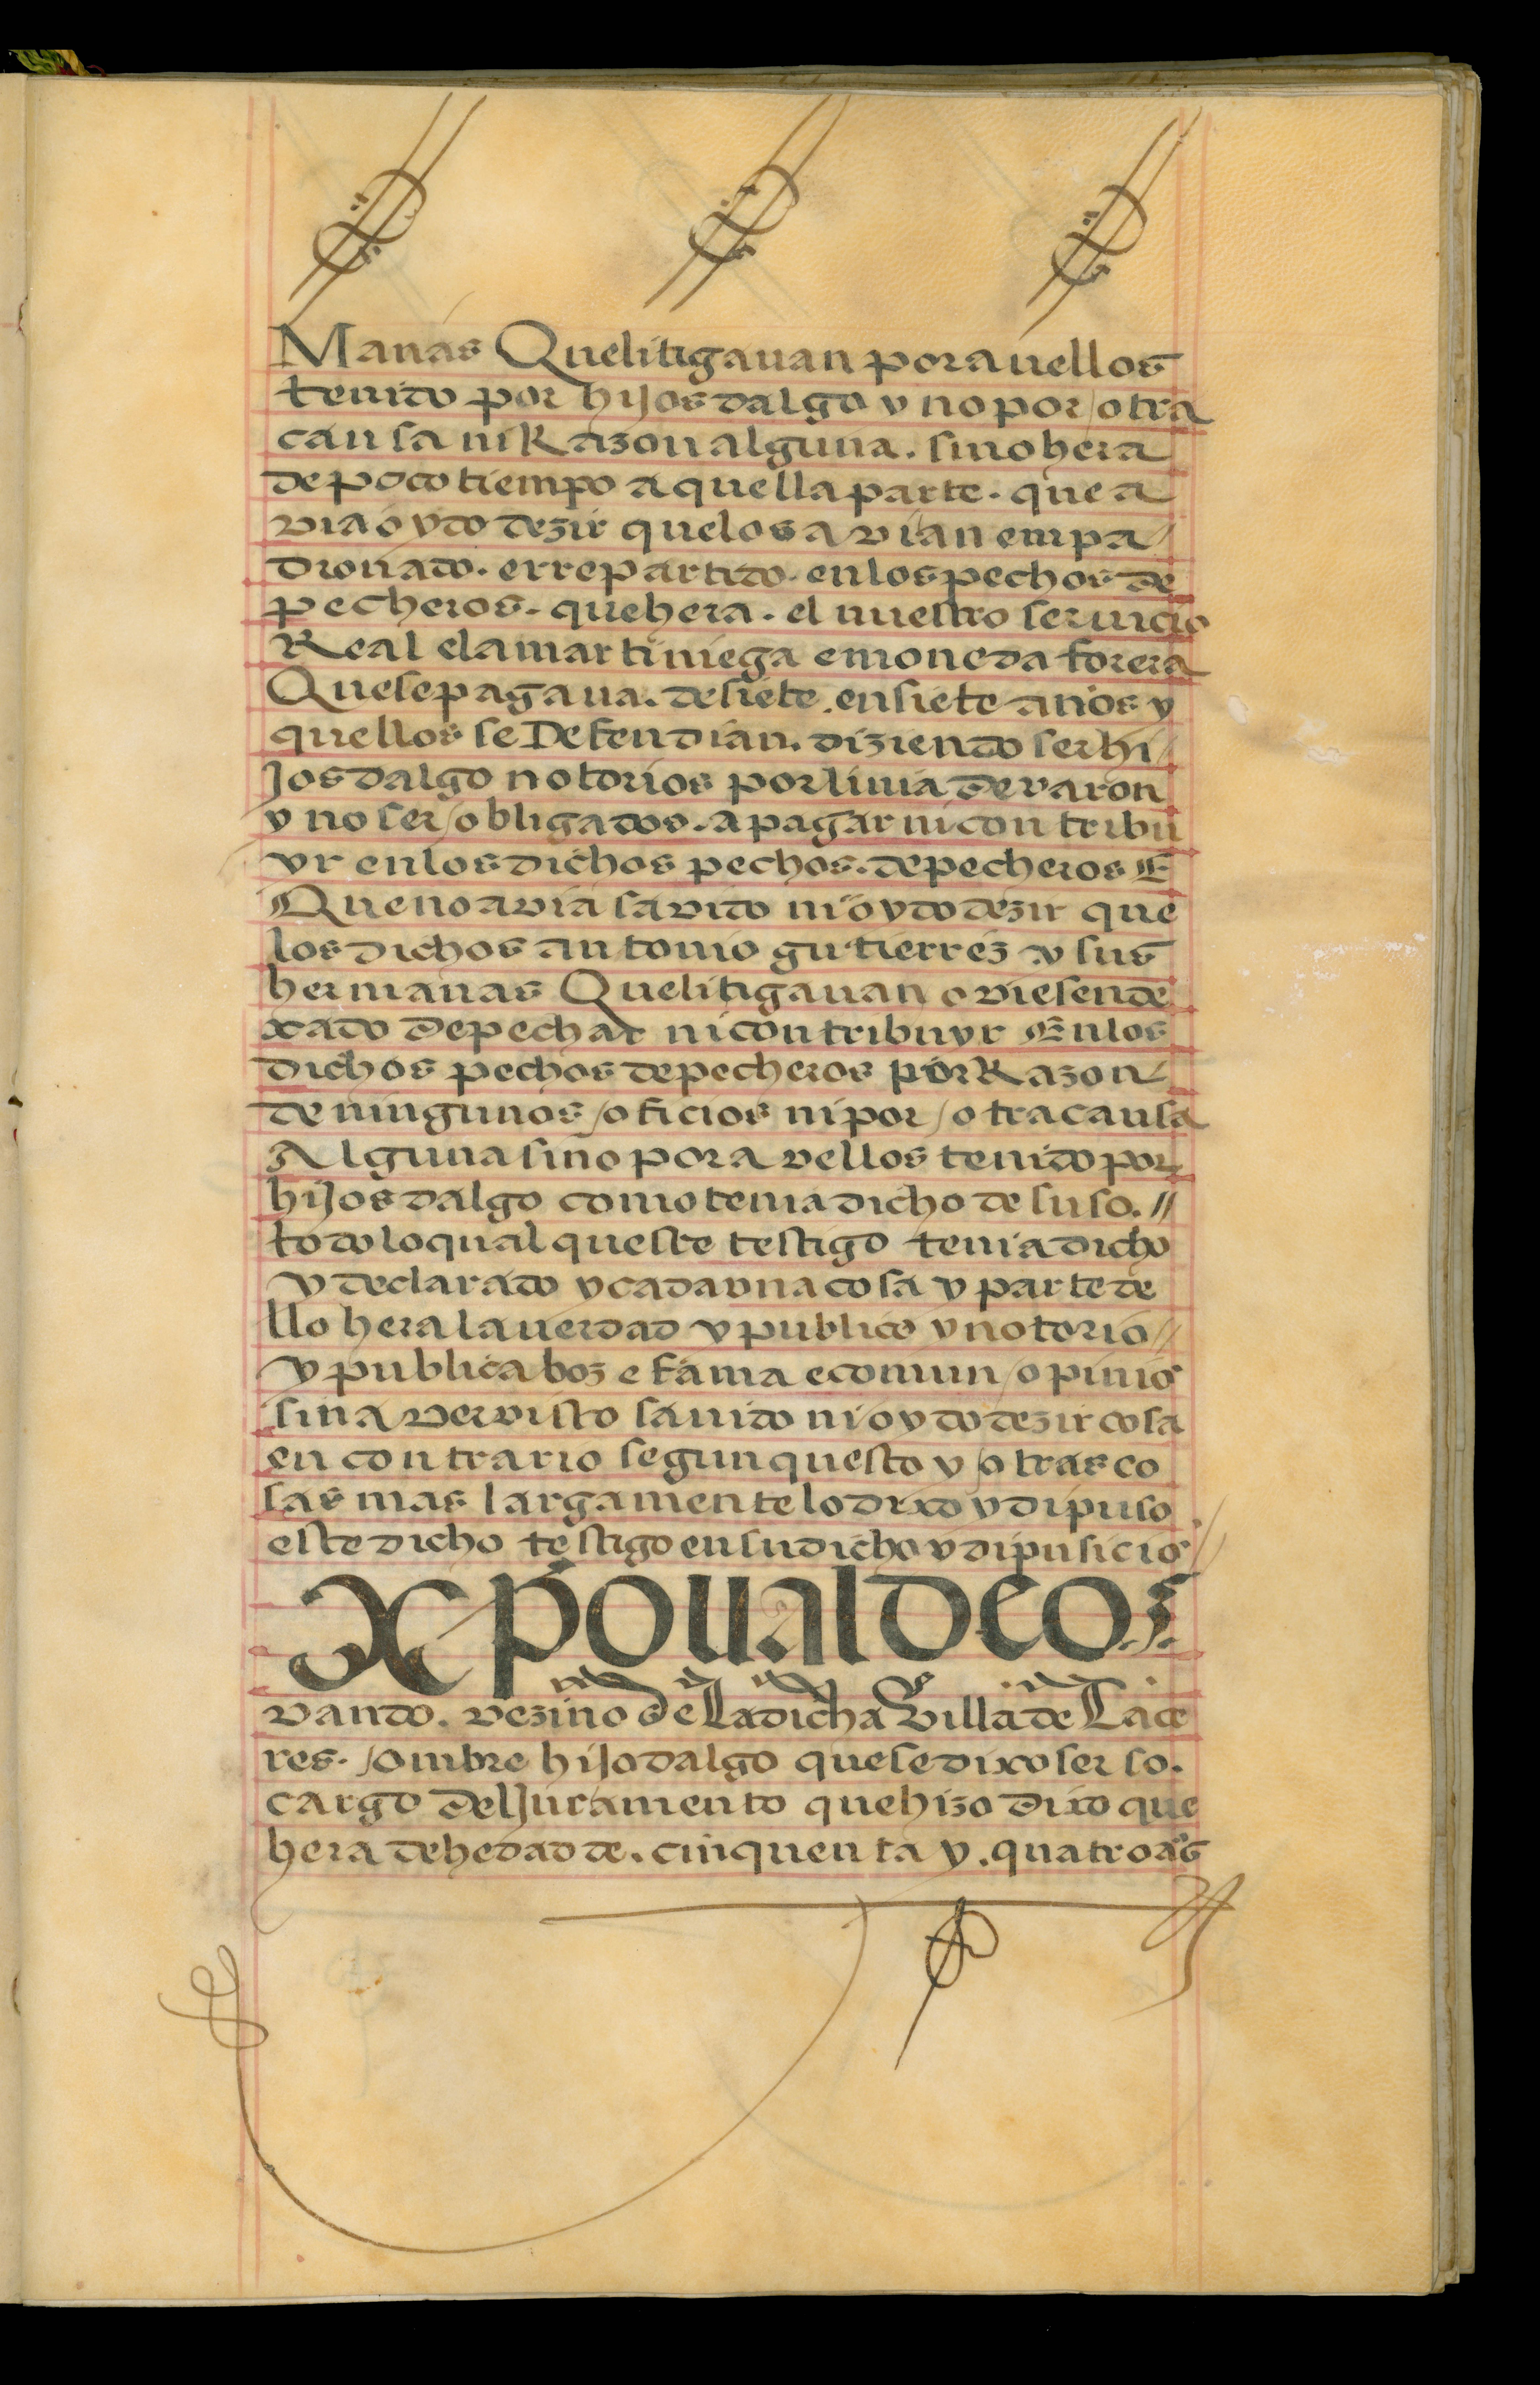 Manas Quelitigauan poravellos
tenido por hijosdalgo y no por otra
causa ni Razon alguna. sino hera
de poco tiempo a quella parte. que a
via oydo dezir quelos avian empa
dronado. e rrepartido. en los pechos de
pecheros. que hera. el nuestro seruicio
Real e la martiniega e moneda forera
Que se pagaua. de siete. en siete años y
quellos se Defendian. diziendo ser hi
jos dalgo notorios por linia de varon
y no ser obligados. a pagar ni contribu
yr en los dichos pechos. de pecheros E
Que no avia savido ni oydo dezir que
los dichos antonio gutierrez y sus
hermanas Quelitigauan oviesen de
xado de pechar ni contribuyr En los
dichos pechos de pecheros por Razon
de ningunos oficios ni por otra causa
Alguna sino por avellos tenido por
hijos dalgo como tenia dicho de suso. //
todo lo qual queste testigo tenia dicho
y declarado y cada vna cosa y parte de
llo hera la uerdad y publico y notorio //
y publica boz e fama e comun opinio
sin aver visto sauido ni oydo dezir cosa
en contrario segun questo y otras co
sas mas largamente lo dixo y dipuso
este dicho testigo en su dicho y dipusicio
xpoual de o
vando. vezino de La dicha Villa de Cace
res. ombre hijodalgo que se dixo ser so.
cargo del Juramento que hizo dixo que
hera de hedad de. cinquenta y. quatro as